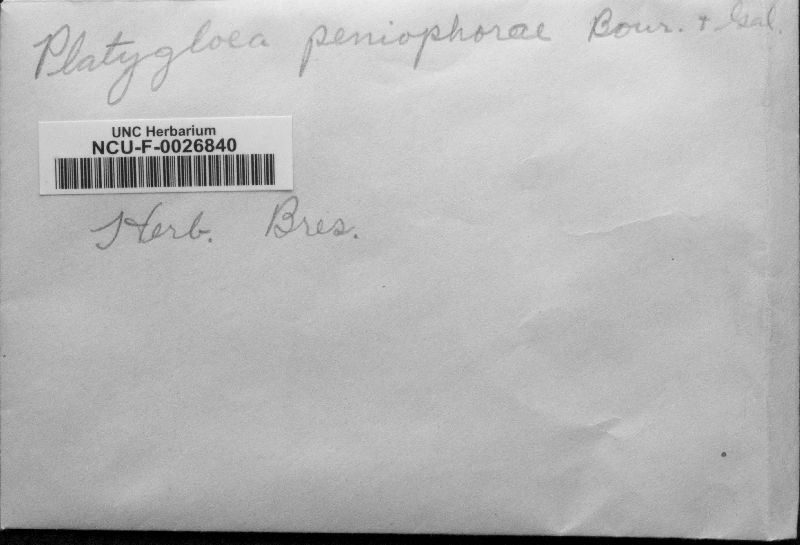 Platygloea peniophorae Bour. + Gal.
UNC Herbarium
NCU-F-0026840
Herb. Bres.